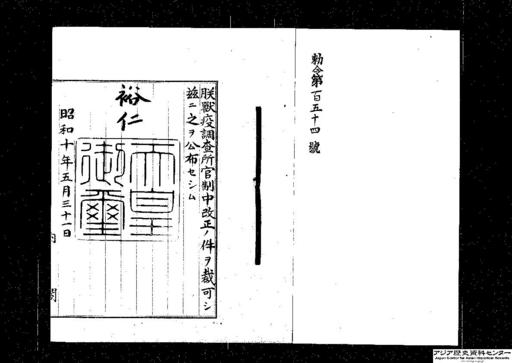 勅令第百五十四號
朕獸疫調査所官制中改正ノ件ヲ裁可シ
茲ニ之ヲ公布セシム
裕仁
天皇御璽
昭和十年五月三十一日
内閣
アジア歴史資料センター
Japan Center for Asian Historical Records